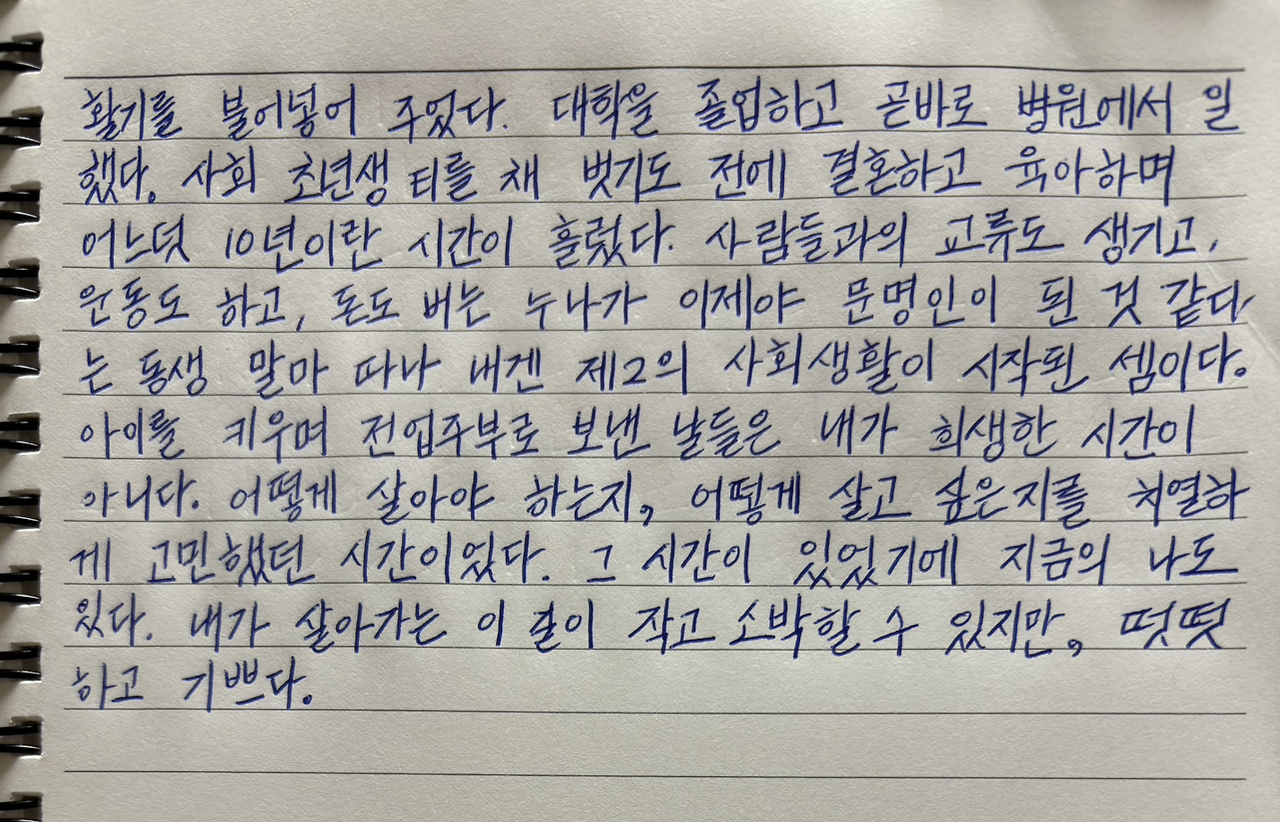 활기를 불어넣어 주었다. 대학을 졸업하고 곧바로 병원에서 일
했다. 사회 초년생 티를 채 벗기도 전에 결혼하고 육아하며
어느덧 10년이란 시간이 흘렀다. 사람들과의 교류도 생기고,
운동도 하고, 돈도 버는 누나가 이제야 문명인이 된 것 같다
는 동생 말마 따나 내겐 제2의 사회생활이 시작된 셈이다.
아이를 키우며 전업주부로 보낸 날들은 내가 희생한 시간이
아니다. 어떻게 살아야 하는지, 어떻게 살고 싶은지를 치열하
게 고민했던 시간이었다. 그 시간이 있었기에 지금의 나도
있다. 내가 살아가는 이 길이 작고 소박할 수 있지만, 떳떳
하고 기쁘다.